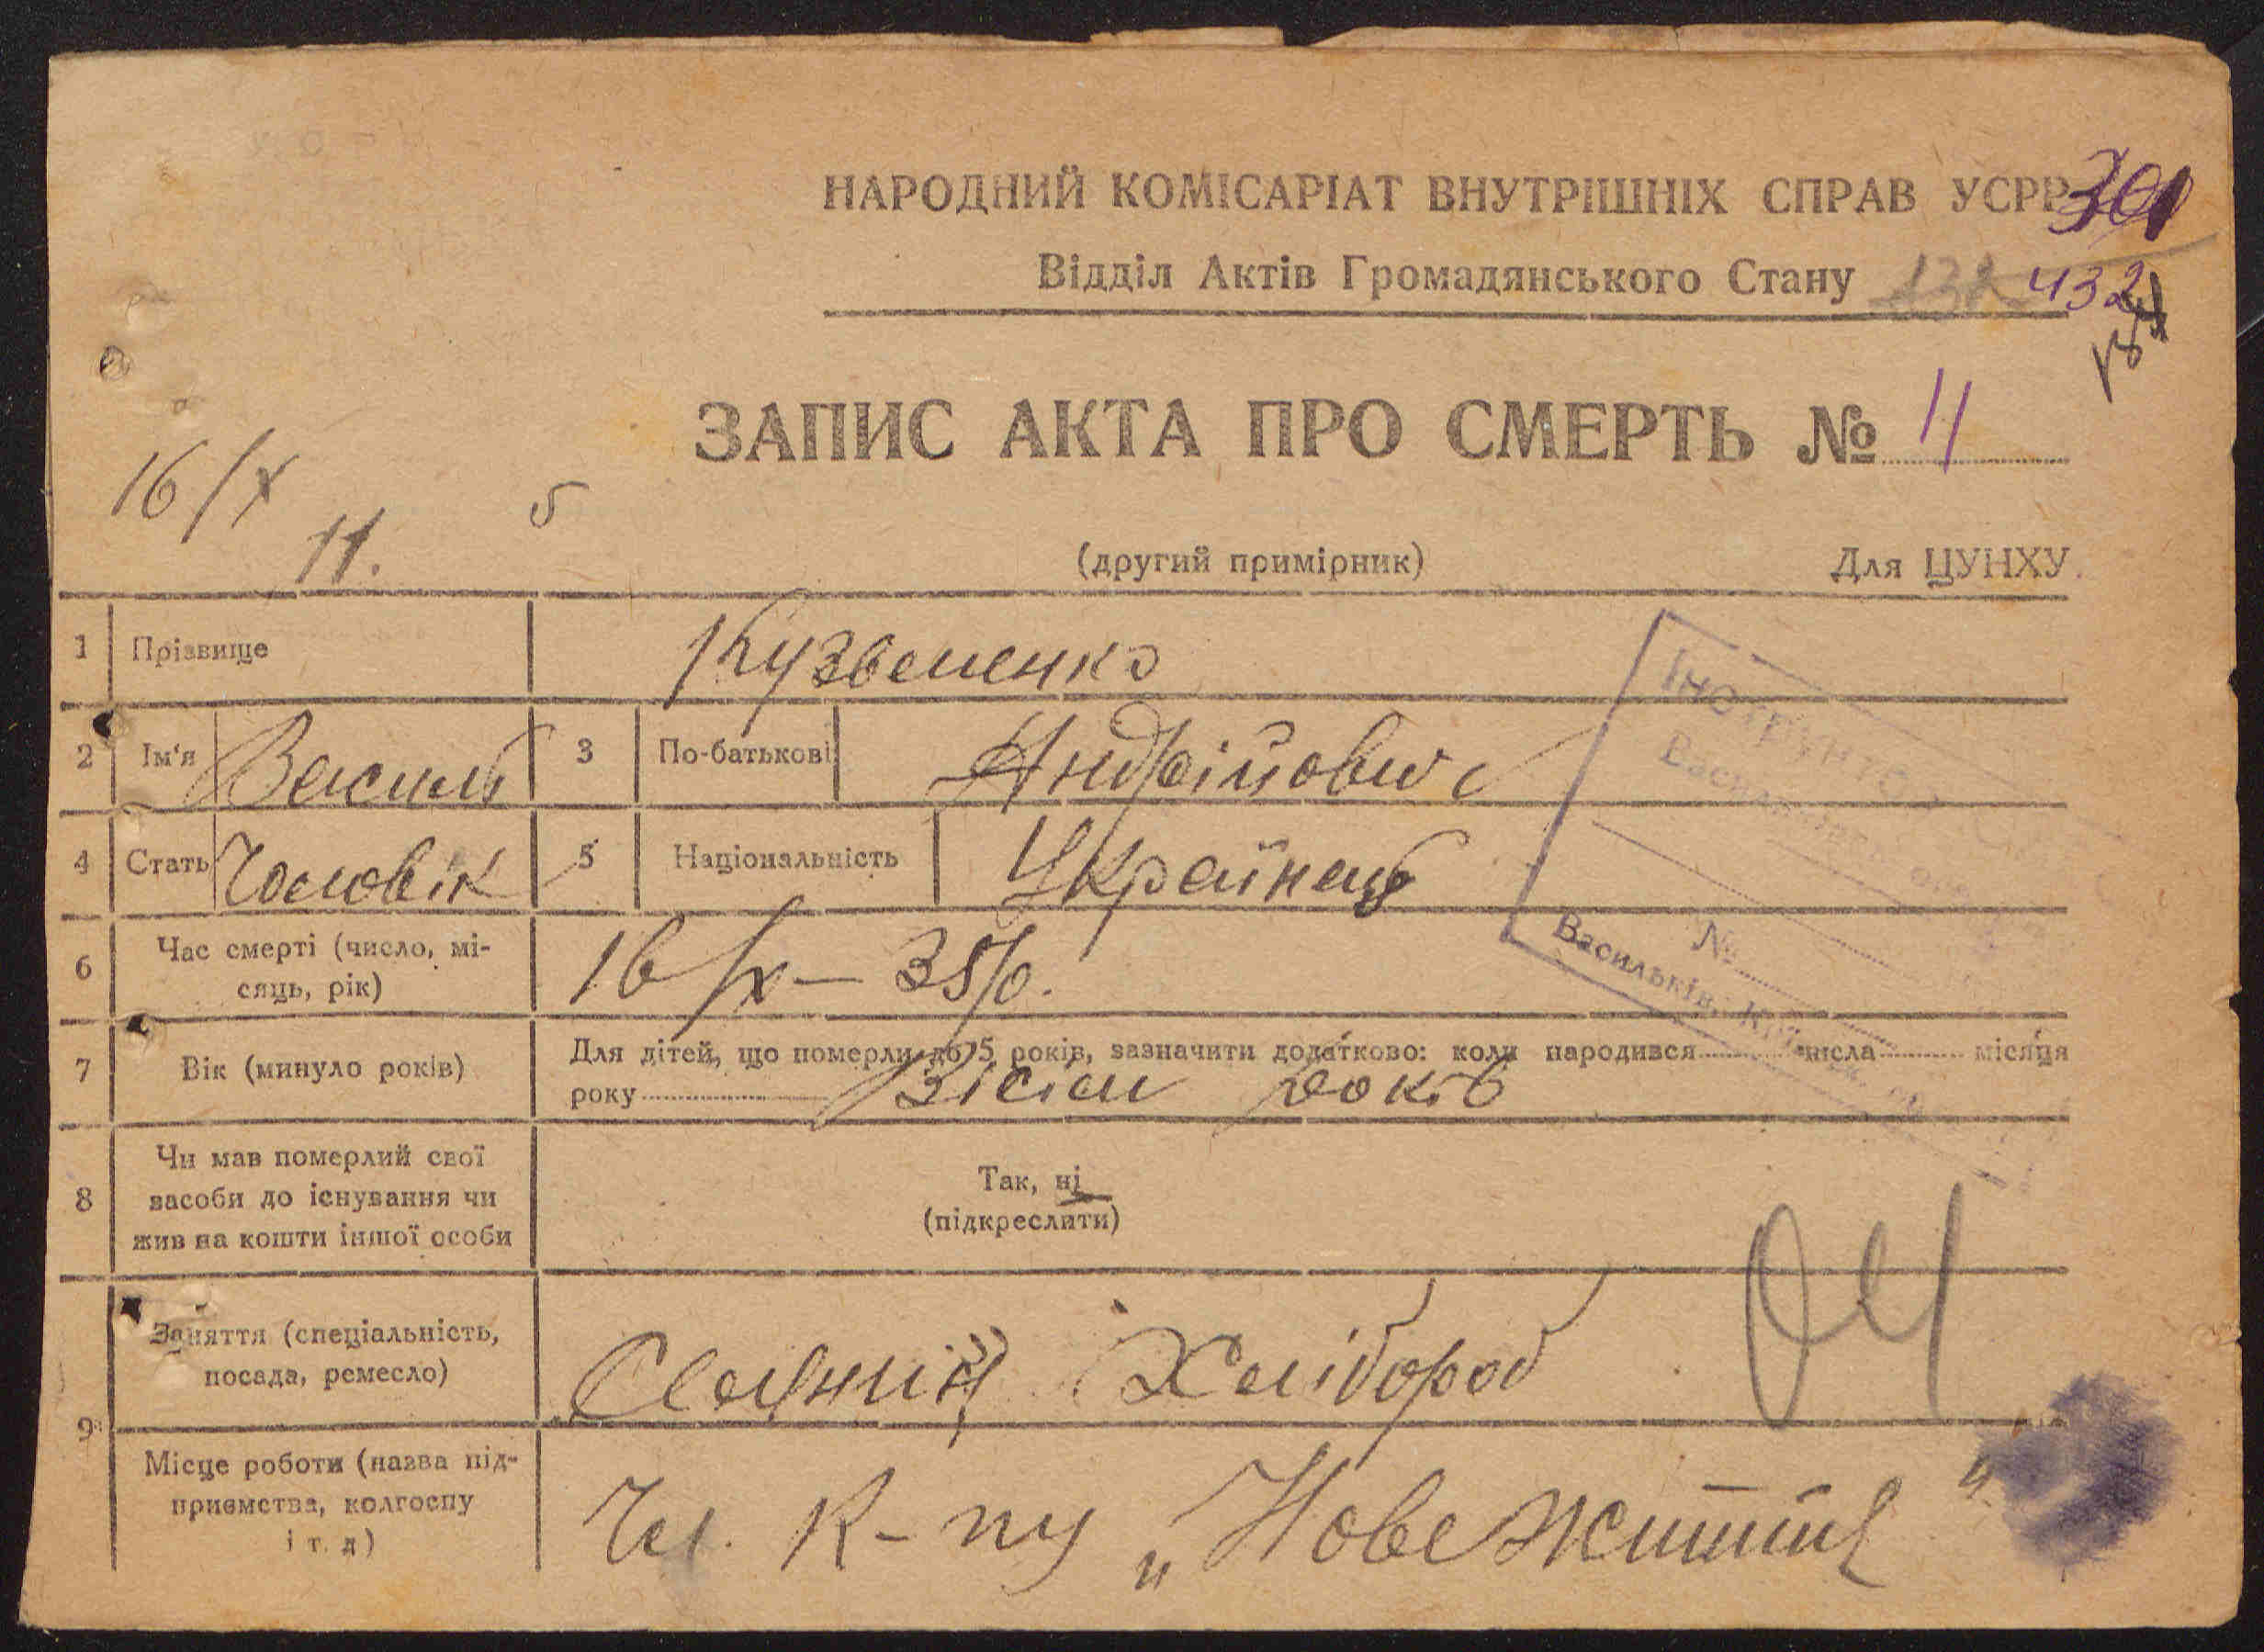 НАРОДНИЙ КОМІСАРІАТ ВНУТРІШНІХ СПРАВ УСРР
Відділ Актів Громадянського Стану 132 432
184
ЗАПИС АКТА ПРО СМЕРТЬ № 11
16/X
11.
(другий примірник) Для ЦУНХУ.
1 Прізвище Кузьменко
2 Ім'я Василь 3 По-батькові Андрійович
4 Стать Чоловік 5 Національність Українець
6 Час смерті (число, мі-
сяць, рік) 16/X – 35/р.
7 Вік (минуло років) Для дітей, що померли до 5 років, зазначити додатково: коли народився числа місяця
року Вісім років
8 Чи мав померлий свої
засоби до існування чи
жив на кошти іншої особи
Так, ні
(підкреслити)
9 Заняття (спеціальність,
посада, ремесло) Хлібороб
Місце роботи (назва під-
приємства, колгоспу
і т. д) Чл. К-пу „Нове життя"
№
Васильків,